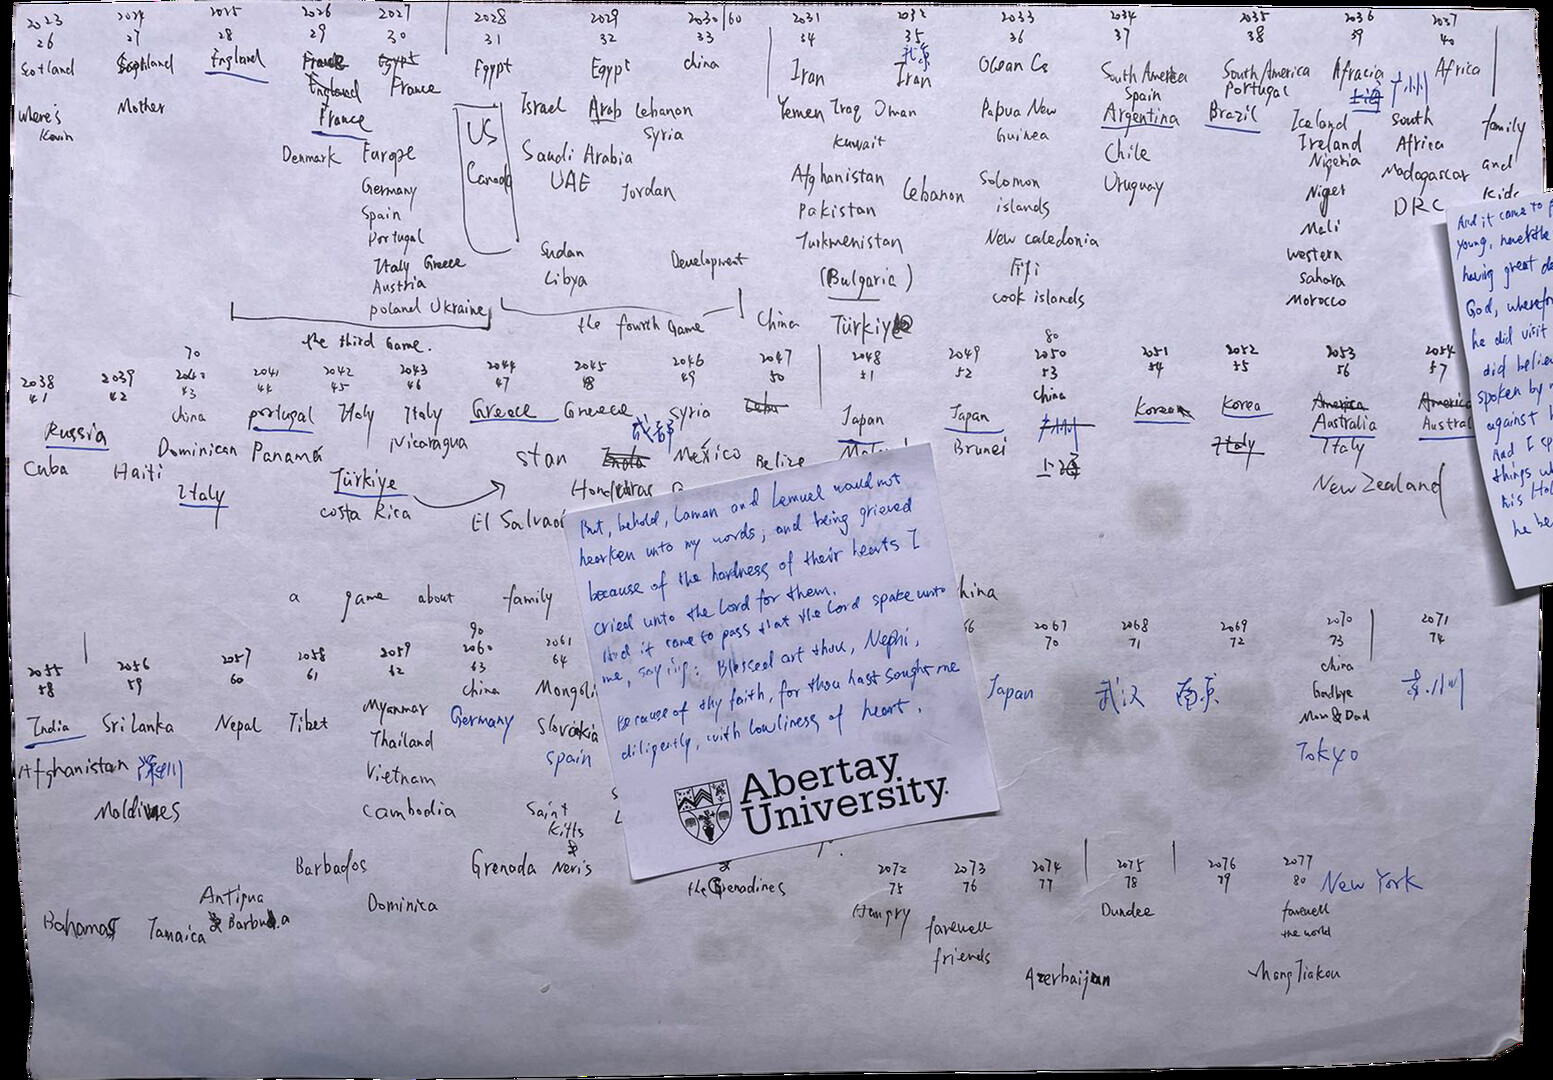 2023 2024 2025 2026 2027 2028 2029 2030/60 2031 2032 2033 2034 2035 2036 2037
26 27 28 29 30 31 32 33 34 35 36 37 38 39 40
Scotland Scotland England France Egypt Egypt Egypt China Iran Iran Ocean Cs South America South America Africa Africa
England France
where's Mother France US Israel Arab Lebanon Yemen Iraq Oman Papua New Spain Portugal 上海 广州
Kevin Syria Guinea Argentina Brazil Iceland South family
Denmark Europe Canada Saudi Arabia Kuwait Chile Ireland Africa and
Germany UAE Jordan Afghanistan Lebanon Solomon Uruguay Nigeria Madagascar kids
Spain Pakistan islands Niger DRC
Portugal Turkmenistan New Caledonia Mali
Italy Greece Sudan Development (Bulgaria) Fiji western
Austria Libya cook islands sahara
Poland Ukraine China Türkiye Morocco
the third Game. the fourth Game
70 80
2038 2039 2041 2042 2043 2044 2045 2046 2047 2048 2049 2050 2051 2052 2053 2054
41 42 43 44 45 46 47 48 49 50 51 52 53 54 55 56 57
Russia China Portugal Italy Italy Greece Greece Syria Japan Japan China Korea Korea America America
Cuba Haiti Dominican Panama Nicaragua stan 成都 India Mexico Belize Brunei 广州 Italy Australia
Italy Türkiye Honduras 上海 Italy
costa Rica El Salvador New Zealand
a game about family
90
2055 2056 2057 2058 2059 2060 2061 2067 2068 2069 2070 2071
58 59 60 61 62 63 64 70 71 72 73 74
India Sri Lanka Nepal Tibet Myanmar China Japan 武汉 南京 China
Afghanistan 深圳 Thailand Germany Slovakia Goodbye
Maldives Vietnam Spain Mom & Dad
Cambodia Saint Tokyo
Kitts
&
Barbados Grenada Nevis the Grenadines
Antigua
Bahamas Jamaica & Barbuda Dominica
2072 2073 2074 2075 2076 2077
75 76 77 78 79 80 New York
farewell Dundee farewell
friends the world
Azerbaijan Zhang Jiakou
But, behold, Laman and Lemuel would not
hearken unto my words; and being grieved
because of the hardness of their hearts I
cried unto the Lord for them.
And it came to pass that the Lord spake unto
me, saying: Blessed art thou, Nephi,
because of thy faith, for thou hast sought me
diligently, with lowliness of heart.
Abertay
University
And it came to
young,
having great
God,
he did visit
did believe
spoken by
against
And I
things
his
he